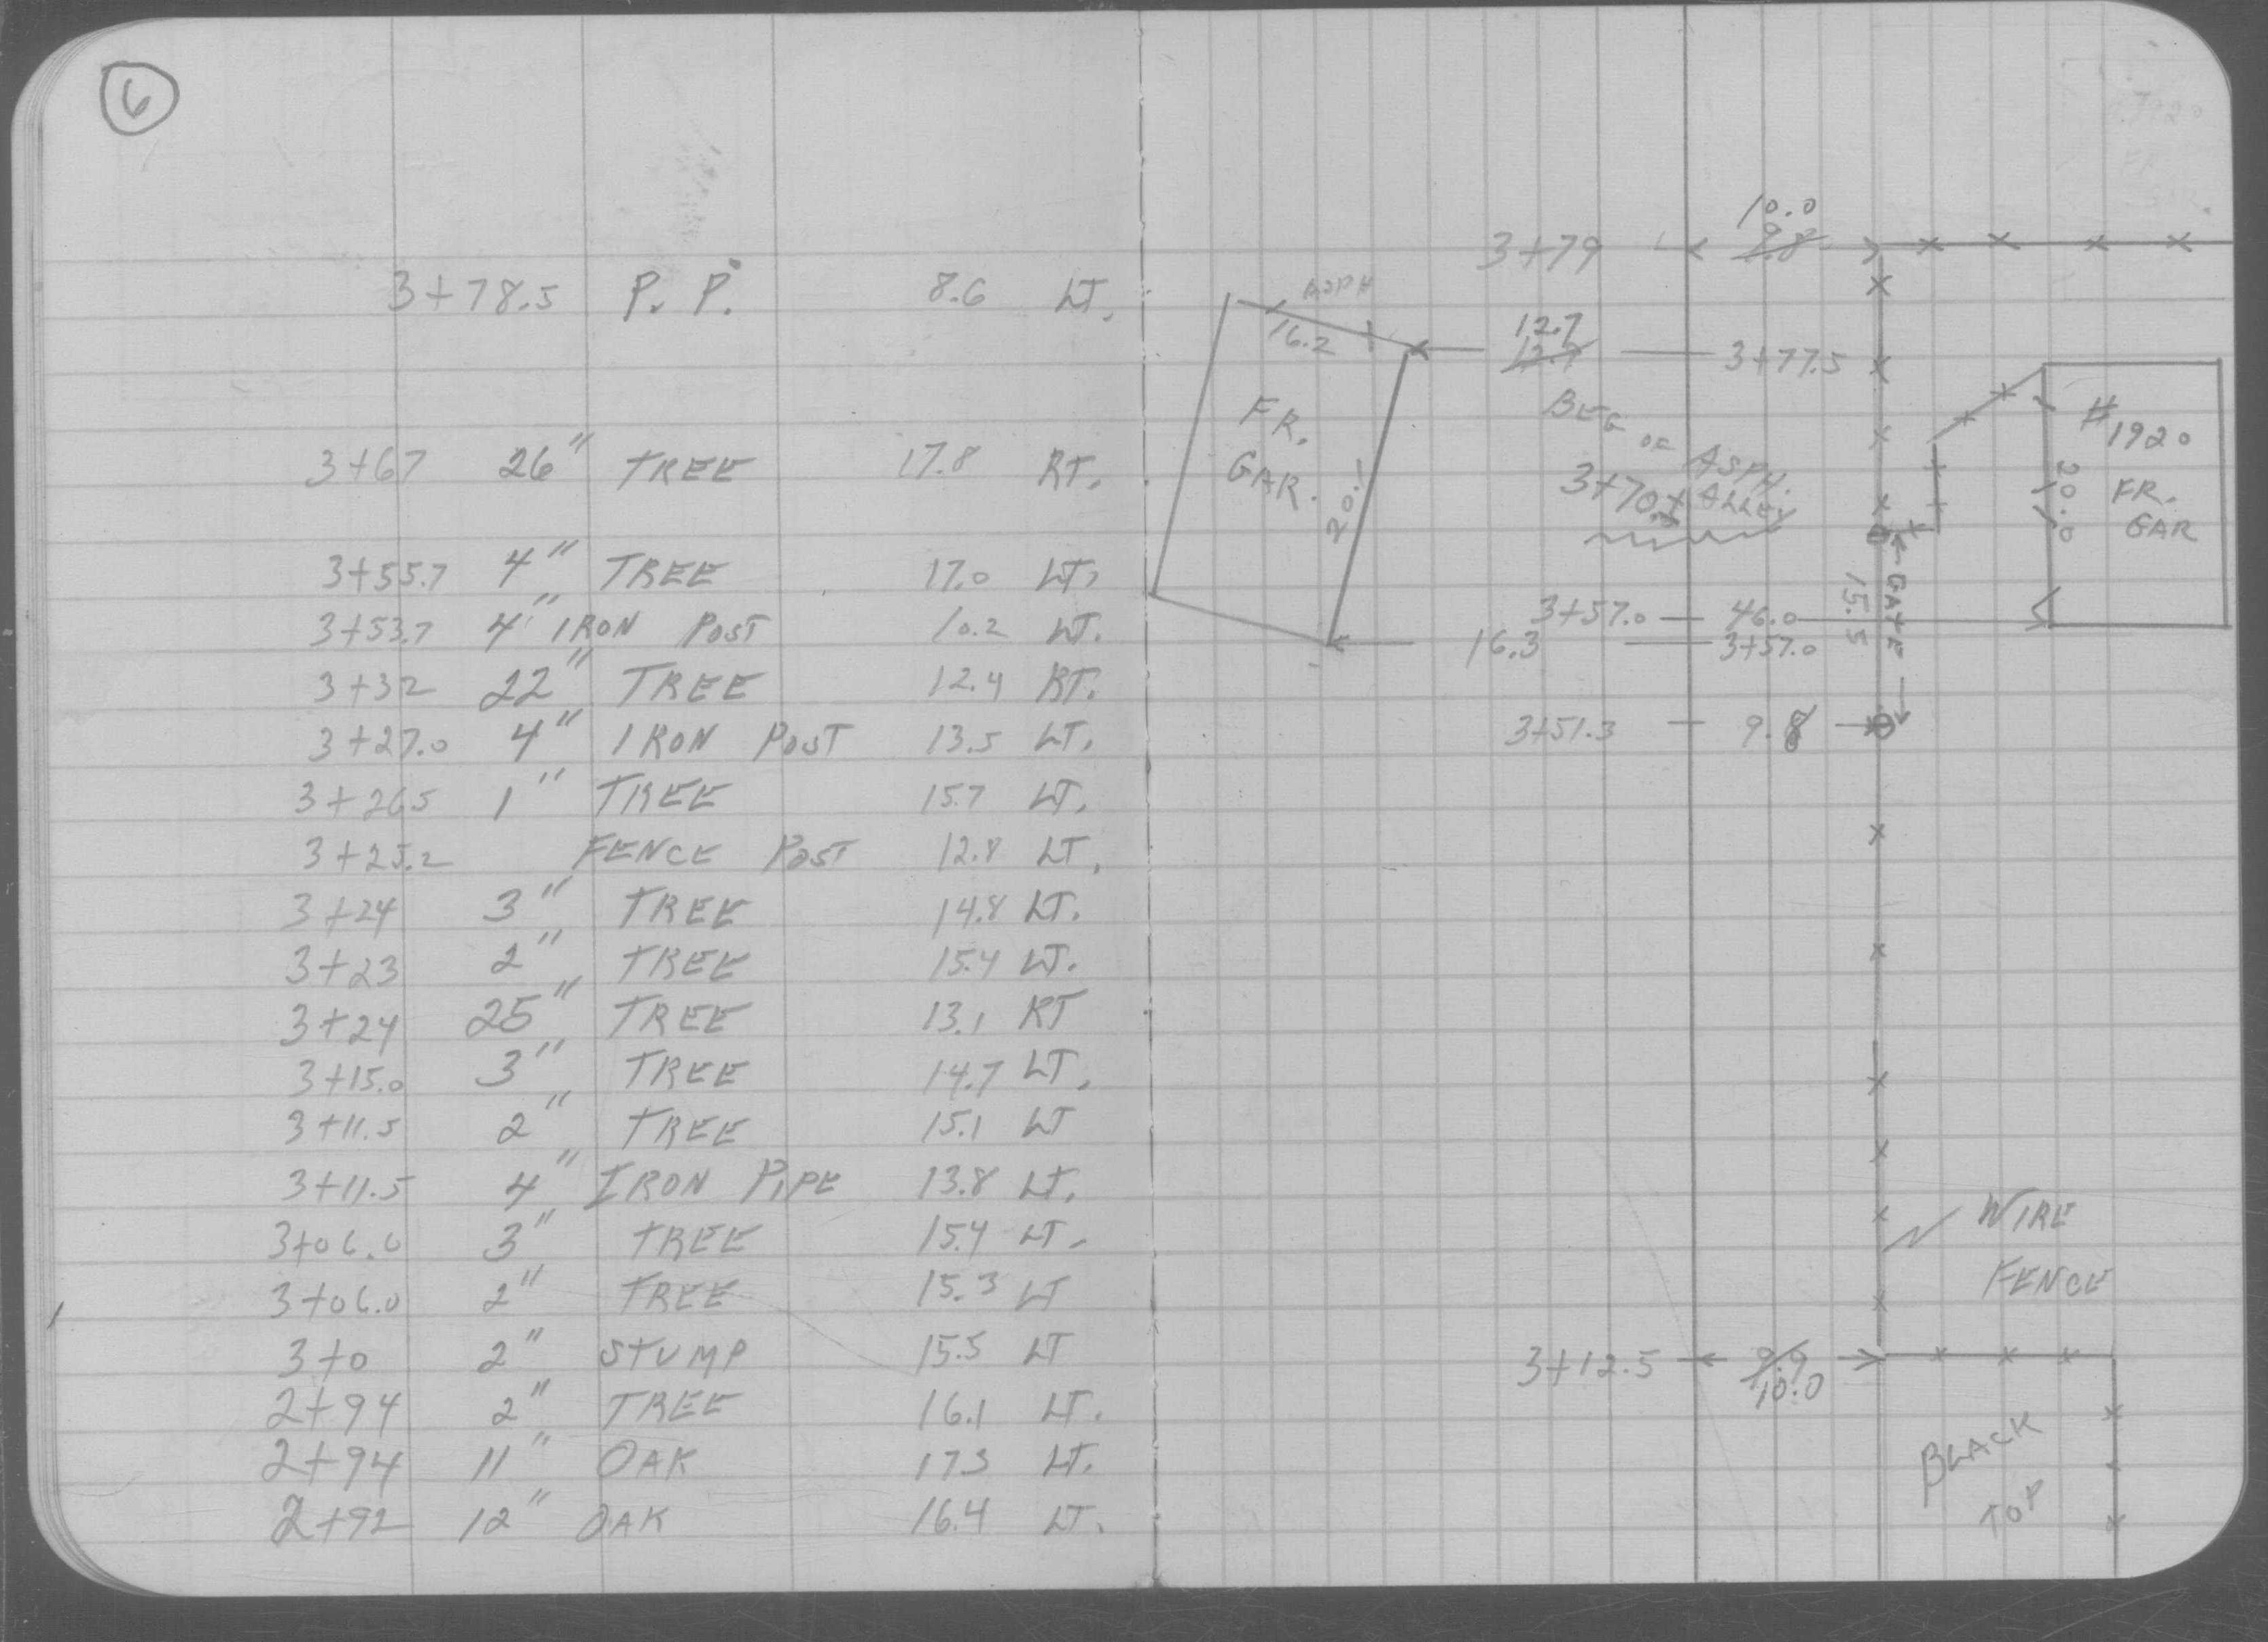 6
3+78.5 P. P. 8.6 LT.
3+67 26" TREE 17.8 RT.
3+55.7 4" TREE 17.0 LT.
3+53.7 4" IRON POST 10.2 LT.
3+32 22" TREE 12.4 RT.
3+27.0 4" IRON POST 13.5 LT.
3+26.5 1" TREE 15.7 LT.
3+25.2 FENCE POST 12.8 LT.
3+24 3" TREE 14.8 LT.
3+23 2" TREE 15.4 LT.
3+24 25" TREE 13.1 RT
3+15.0 3" TREE 14.7 LT.
3+11.5 2" TREE 15.1 LT
3+11.5 4" IRON PIPE 13.8 LT.
3+06.0 3" TREE 15.4 LT.
3+06.0 2" TREE 15.3 LT
3+0 2" STUMP 15.5 LT
2+94 2" TREE 16.1 LT.
2+94 11" OAK 17.3 LT.
2+92 12" OAK 16.4 LT.
10.0
3+79 9.8
ASPH
16.2
12.7
3+77.5
FR.
GAR.
20.1
BEG OF ASPH.
3+70.± ALLEY
#1920
FR.
GAR
20.0
GATE
15.5
3+57.0 46.0
16.3 3+57.0
3+51.3 9.8
WIRE
FENCE
3+12.5 9.9
10.0
BLACK
TOP